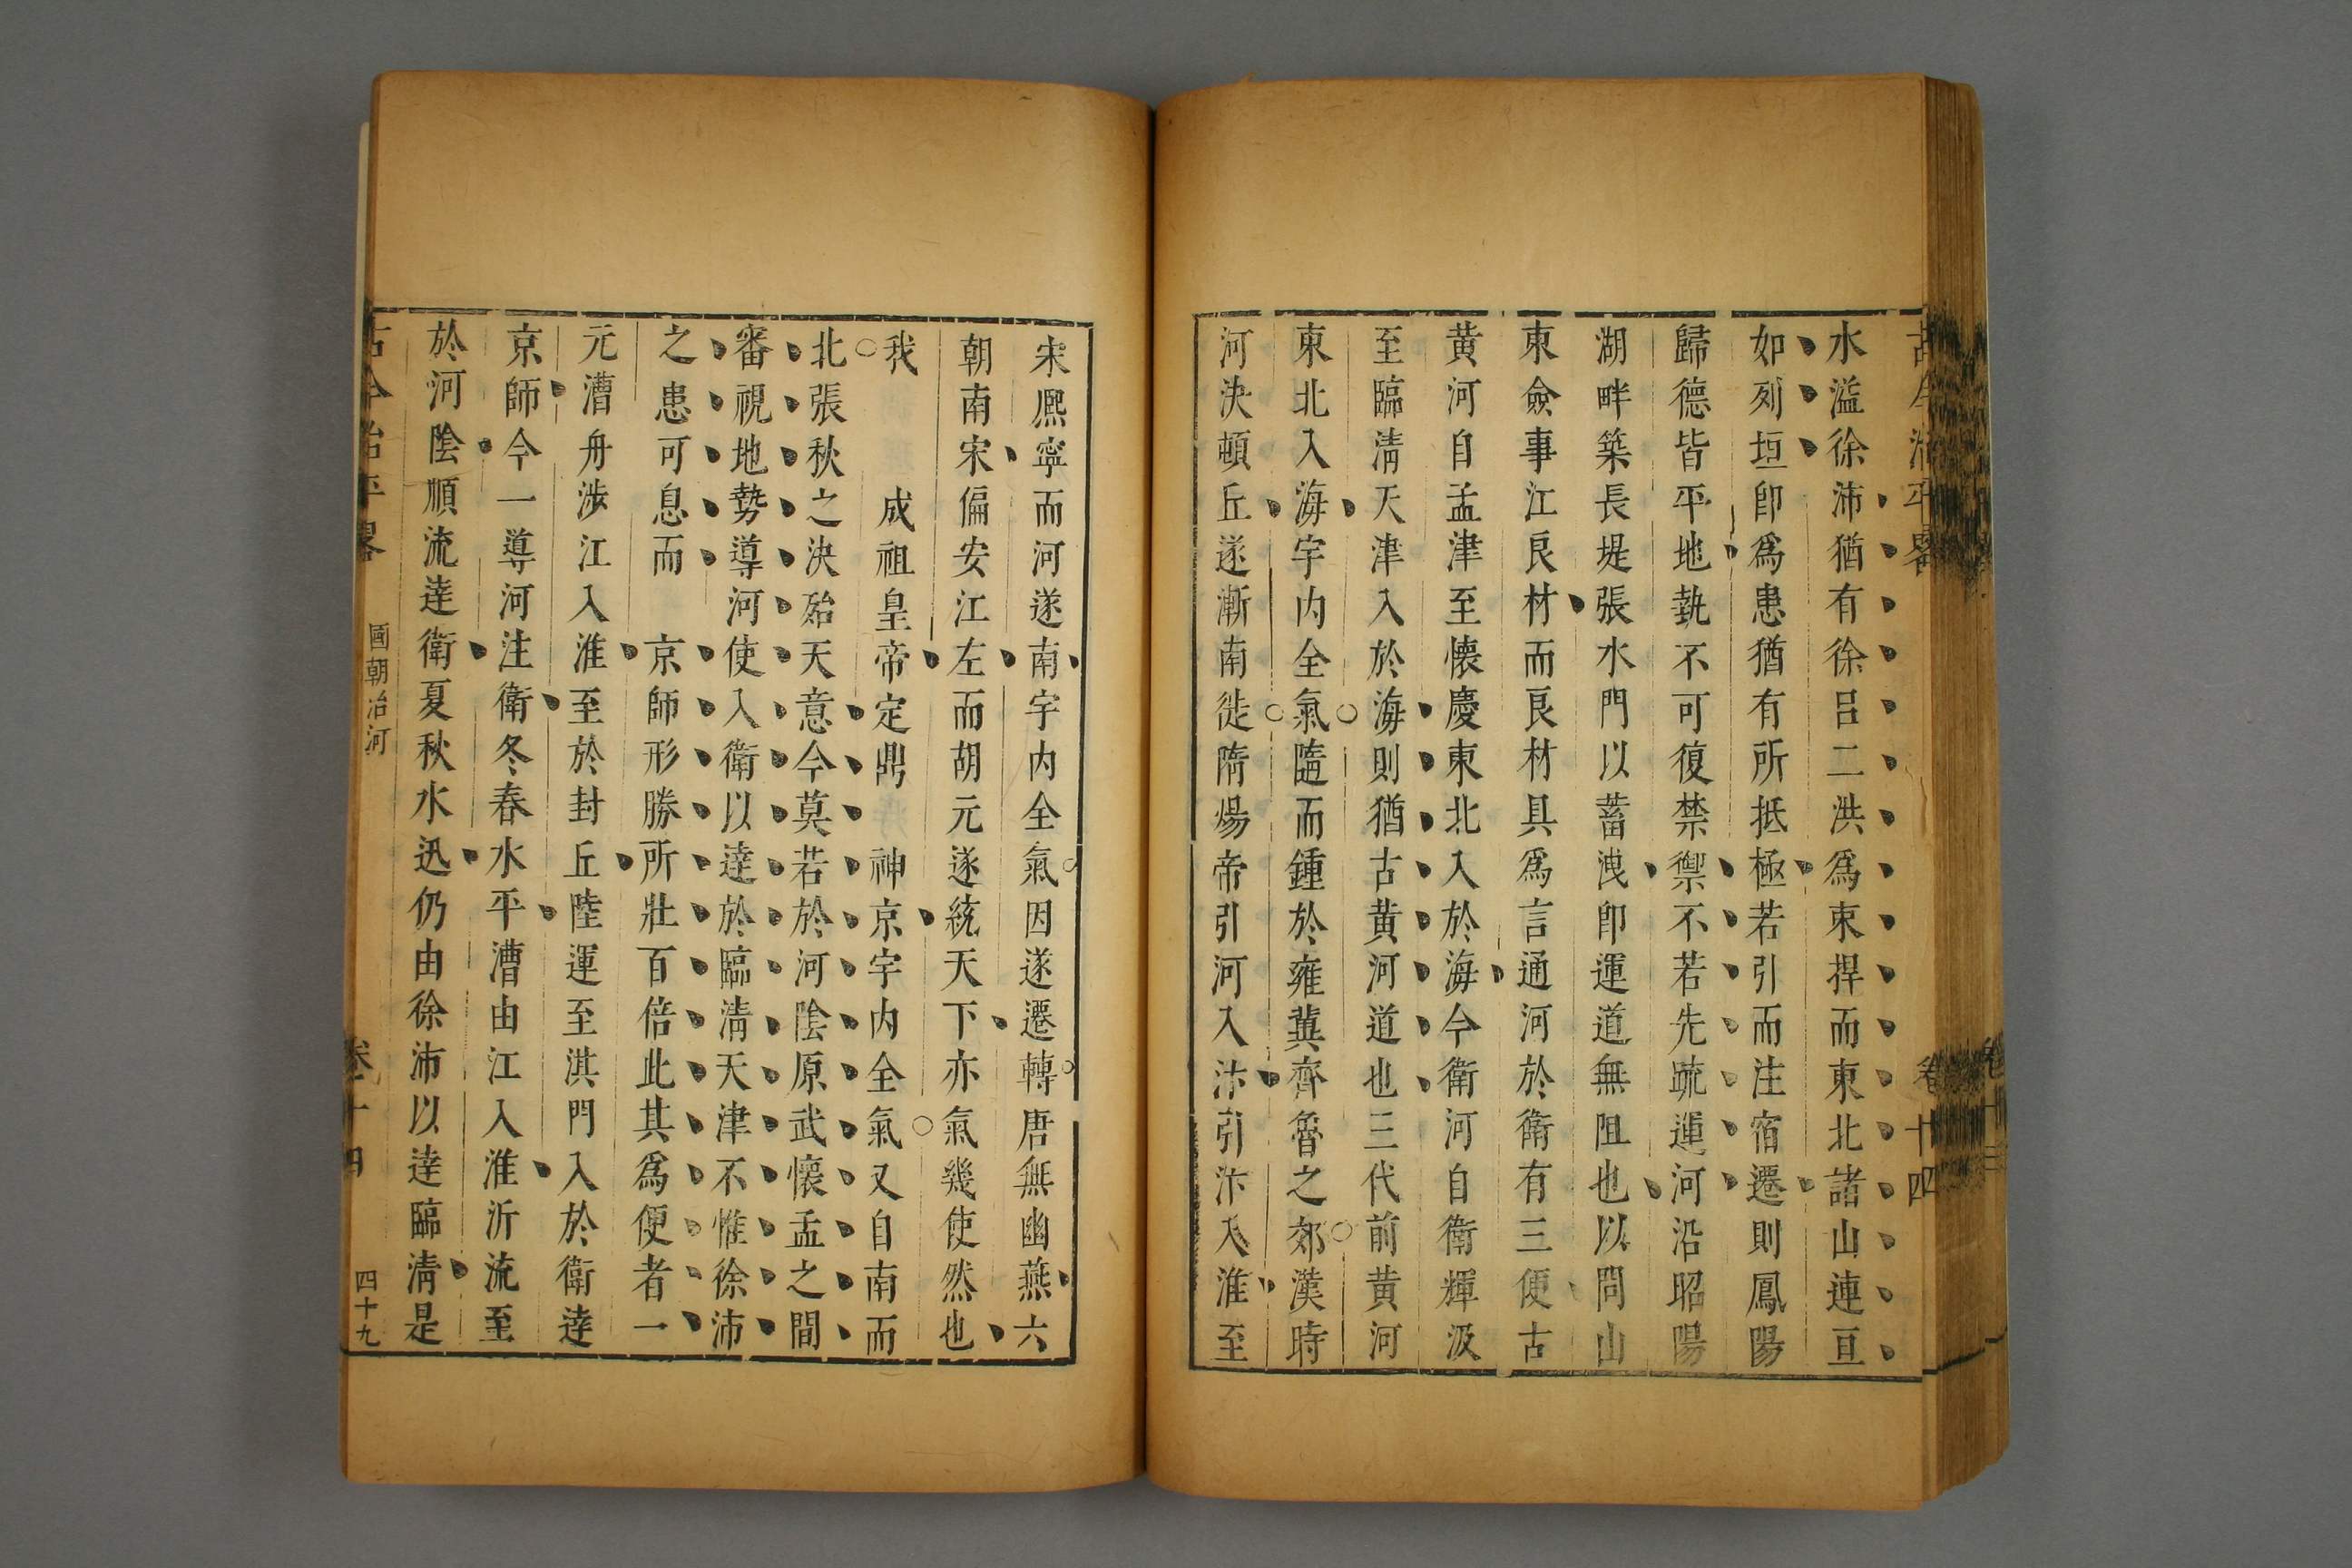 古今治平畧
卷十四
水溢徐沛猶有徐呂二洪爲束捍而東北諸山連亘
如列垣卽爲患猶有所抵極若引而注宿遷則鳳陽
歸德皆平地執不可復禁禦不若先疏運河沿昭陽
湖畔築長堤張水門以蓄洩卽運道無阻也以問山
東僉事江良材而良材具爲言通河於衛有三便古
黄河自孟津至懷慶東北入於海今衛河自衛輝汲
至臨淸天津入於海則猶古黄河道也三代前黄河
東北入海宇内全氣隨而鍾於雍冀齊魯之郊漢時
河決頓丘遂漸南徙隋煬帝引河入汴引汴入淮至
宋熈寧而河遂南宇内全氣因遂遷轉唐無幽燕六
朝南宋偏安江左而胡元遂統天下亦氣幾使然也
我 成祖皇帝定鼎 神京宇内全氣又自南而
北張秋之決殆天意今莫若於河陰原武懷孟之間
審視地勢導河使入衛以達於臨淸天津不惟徐沛
之患可息而 京師形勝所壯百倍此其爲便者一
元漕舟涉江入淮至於封丘陸運至淇門入於衛達
京師今一導河注衛冬春水平漕由江入淮泝流至
於河陰順流達衛夏秋水迅仍由徐沛以達臨淸是
古今治平畧 國朝治河 卷十四 四十九